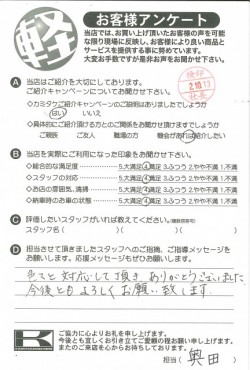 軽
お客様アンケート
当店では、お買い上げ頂いたお客様の声を可能
な限り現場に反映し、お客様により良い商品と
サービスを提供する事に努めています。
大変お手数ですが是非お声をお聞かせ下さい。
A 当店はご紹介を大切にしております。
ご紹介キャンペーンについてお聞かせ下さい。
◇カミタケご紹介キャンペーンのご説明はありましたでしょうか
はい いいえ
◇具体的にご紹介頂ける方とのご関係をお聞かせ頂けますでしょうか
ご親友 ご友人 職場の方 機会があれば紹介したい
B 当店を実際にご利用になった印象をお聞かせ下さい。
◇総合的な満足度 5.大満足 4.満足 3.ふつう 2.やや不満 1.不満
◇スタッフの対応 5.大満足 4.満足 3.ふつう 2.やや不満 1.不満
◇お店の雰囲気、清掃 5.大満足 4.満足 3.ふつう 2.やや不満 1.不満
◇納車時のお車の状態 5.大満足 4.満足 3.ふつう 2.やや不満 1.不満
C 評価したいスタッフがいれば教えてください。(複数回答可)
スタッフ名( )( )( )
D 担当させて頂きましたスタッフへのご指摘、ご指導メッセージを
お願いします。応援メッセージもぜひお願いします。
対応して頂き ありがとうございました
今後ともよろしくお願い致します。
K
ご協力に心よりお礼を申し上げます。
今後とも宜しくお引き立てご愛顧の程お願い申し上げます。
またのご来店を心からお待ちしております。
担当( 奥田 )